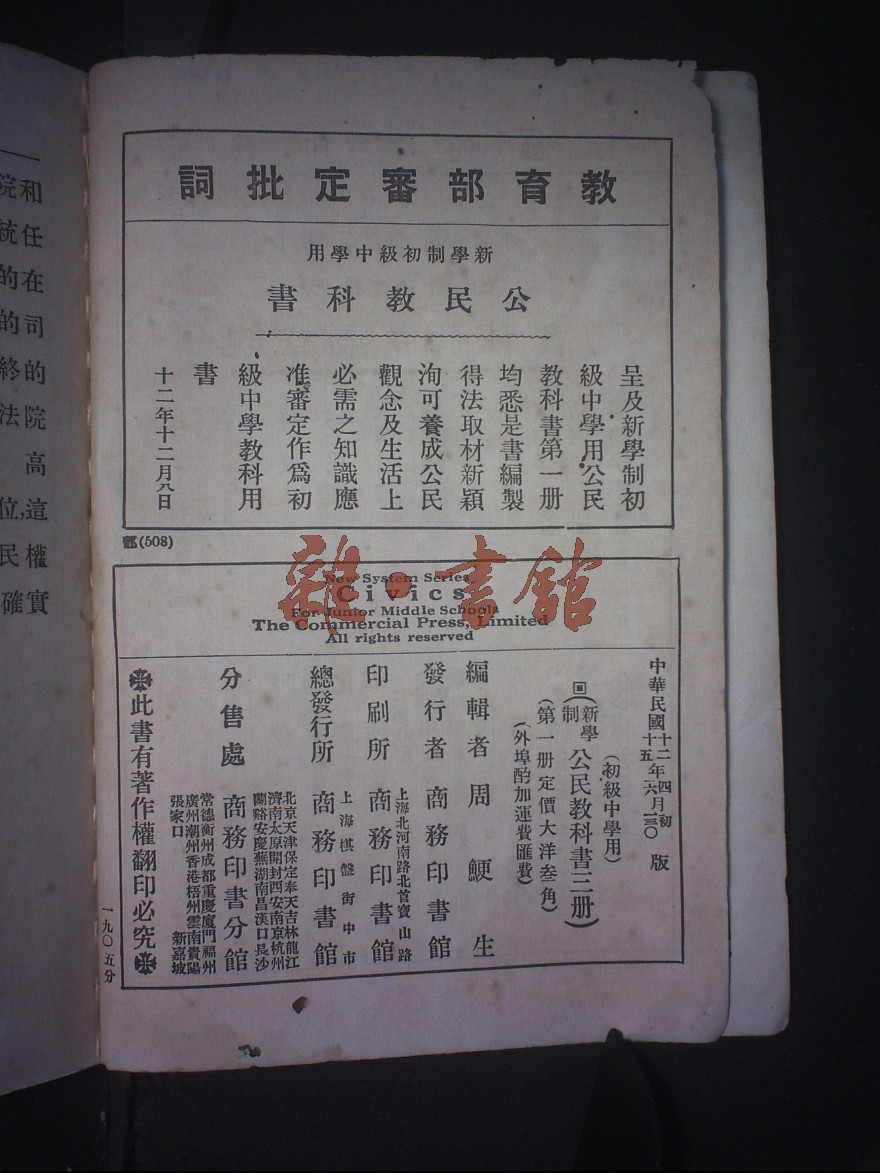 教育部審定批詞
新學制初級中學用
公民教科書
呈及新學制初
級中學用公民
教科書第一册
均悉是書編製
得法取材新穎
洵可養成公民
觀念及生活上
必需之知識應
准審定作爲初
級中學教科用
書
十二年十二月八日
部(508)
New System Series
Civics
For Junior Middle Schools
The Commercial Press, Limited
All rights reserved
雜·書館
中華民國
十二年四月初
版
(初級中學用)
回(新學制 公民教科書三册)
(第一册定價大洋叁角)
(外埠酌加運費匯費)
編輯者 周鯁生
發行者 商務印書館
上海北河南路北首寶山路
印刷所 商務印書館
上海棋盤街中市
總發行所 商務印書館
北京天津保定奉天吉林龍江
濟南太原開封西安南京杭州
蘭谿安慶蕪湖南昌漢口長沙
分售處 商務印書分館
常德衡州成都重慶廈門福州
廣州潮州香港梧州雲南貴陽
張家口 新嘉坡
此書有著作權翻印必究
一九〇五分
和任在司的院高這權實
院統的的終法
位,民確